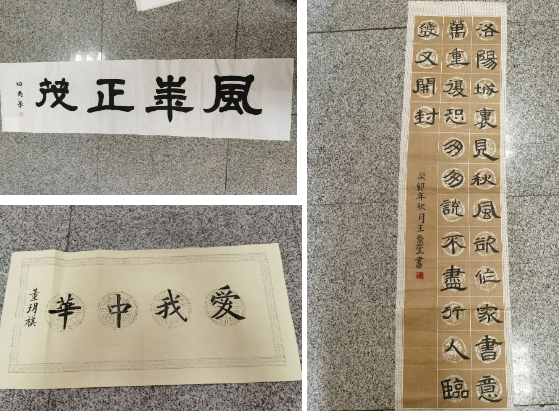 風華正茂
田
愛我中華
董玥祺
洛陽城裏見秋風欲作家書意
萬重復恐匆匆說不盡行人臨
發又開封
癸卯年秋月王書